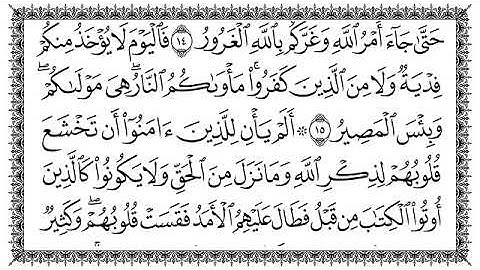 حَتَّىٰ جَآءَ أَمْرُ ٱللَّهِ وَغَرَّكُم بِٱللَّهِ ٱلْغَرُورُ ١٤ فَٱلْيَوْمَ لَا يُؤْخَذُ مِنكُمْ
فِدْيَةٌ وَلَا مِنَ ٱلَّذِينَ كَفَرُوا۟ۚ مَأْوَىٰكُمُ ٱلنَّارُۖ هِىَ مَوْلَىٰكُمْۖ
وَبِئْسَ ٱلْمَصِيرُ ١٥ ۞ أَلَمْ يَأْنِ لِلَّذِينَ ءَامَنُوٓا۟ أَن تَخْشَعَ
قُلُوبُهُمْ لِذِكْرِ ٱللَّهِ وَمَا نَزَلَ مِنَ ٱلْحَقِّ وَلَا يَكُونُوا۟ كَٱلَّذِينَ
أُوتُوا۟ ٱلْكِتَٰبَ مِن قَبْلُ فَطَالَ عَلَيْهِمُ ٱلْأَمَدُ فَقَسَتْ قُلُوبُهُمْۖ وَكَثِيرٌ